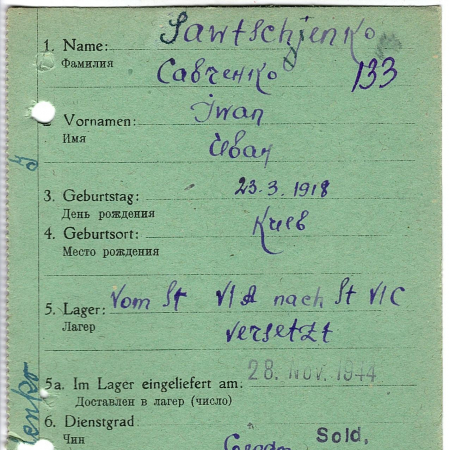 1. Name: Sawtschjenko
Фамилия Савченко 133
2. Vornamen: Iwan
Имя Иван
3. Geburtstag: 23.3.1918
День рождения
4. Geburtsort: Киев
Место рождения
5. Lager: Vom St VI A nach St VI C
Лагер versetzt
5a. Im Lager eingeliefert am: 28. NOV. 1944
Доставлен в лагер (число)
6. Dienstgrad Sold.
Чин
enko